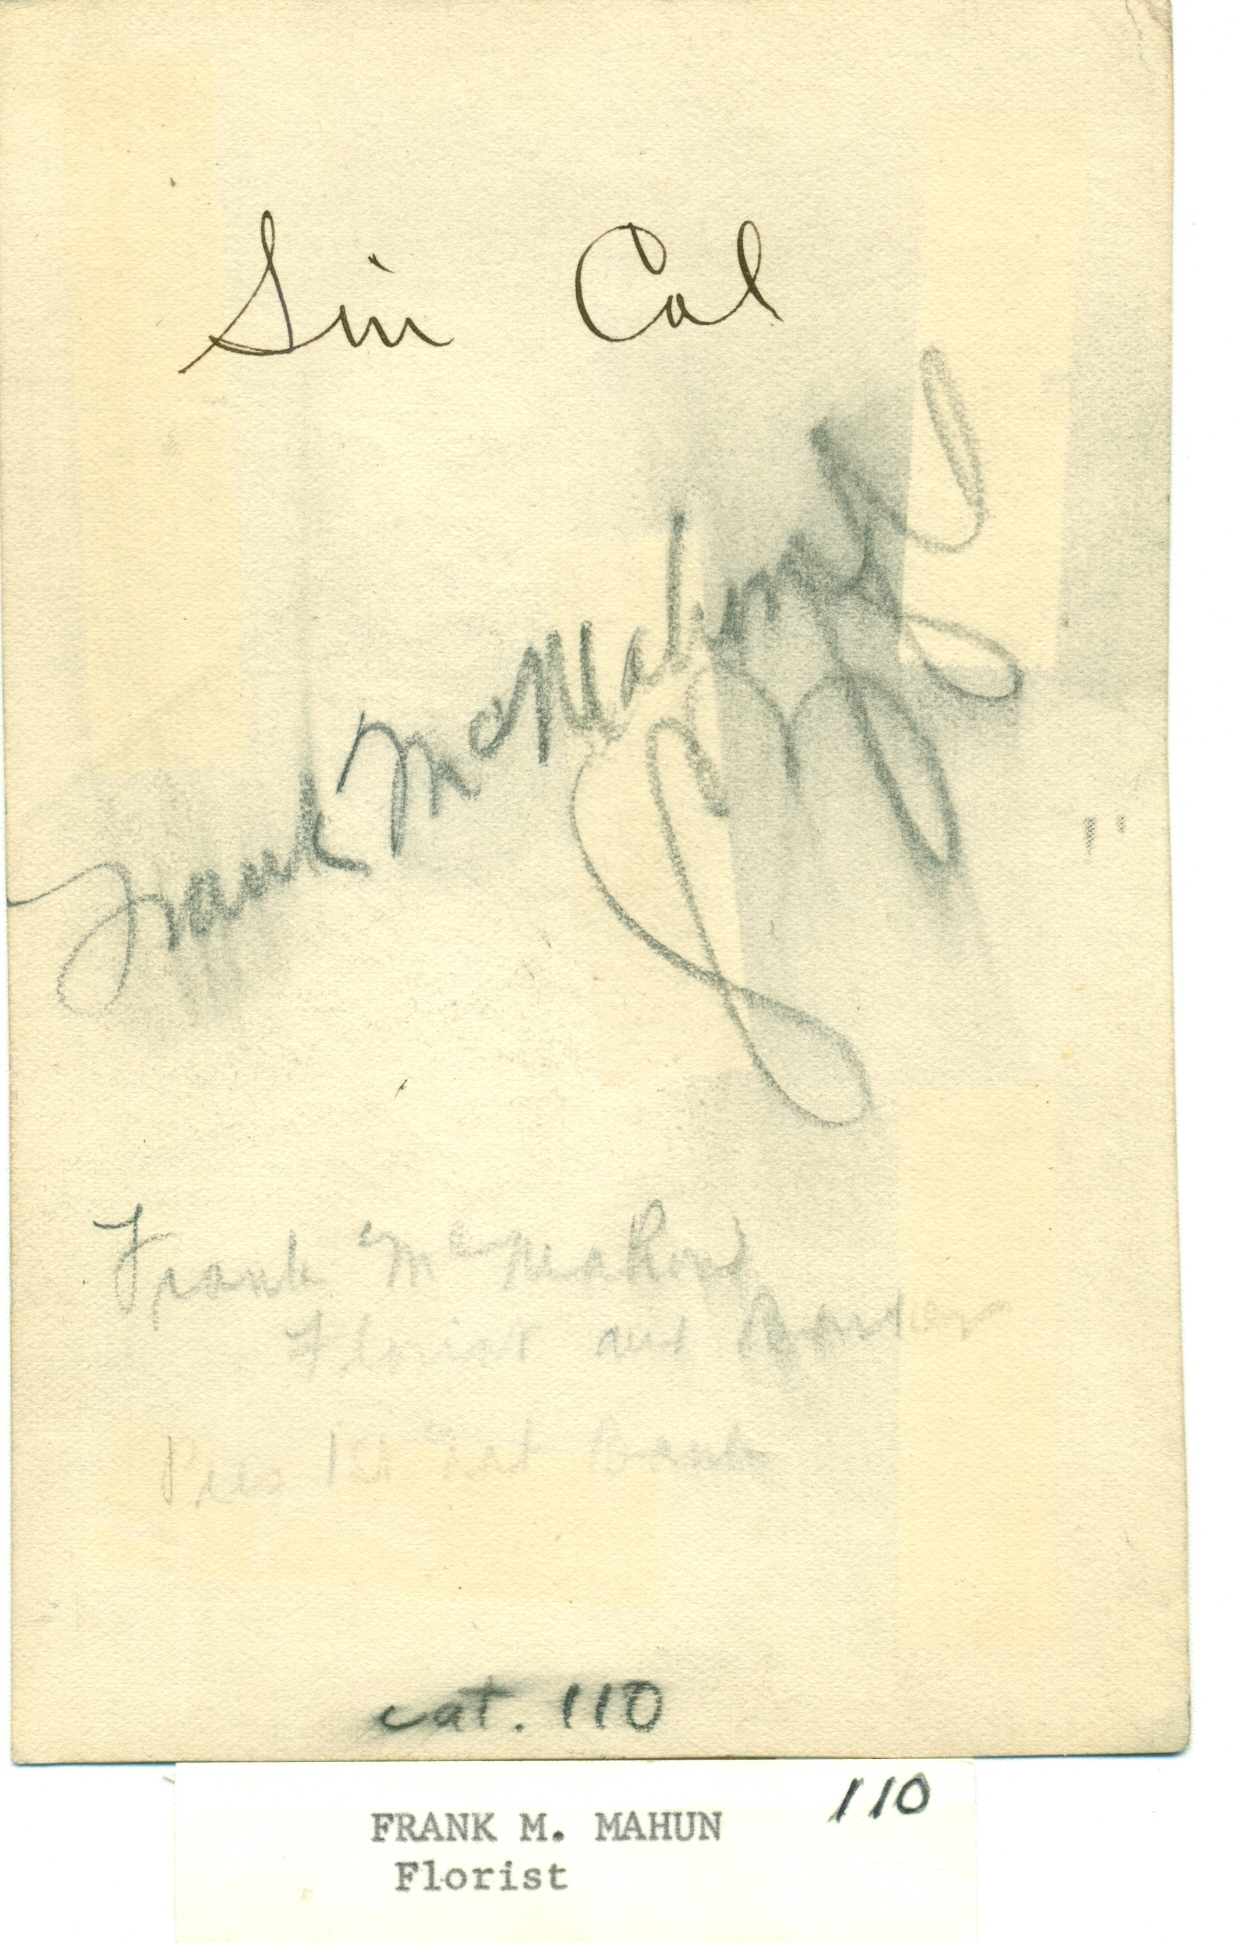 Sin Cal
Frank McMahon
Frank McMahon
Florist and Banker
Pres 1st Nat Bank
cat. 110
110
FRANK M. MAHUN
Florist